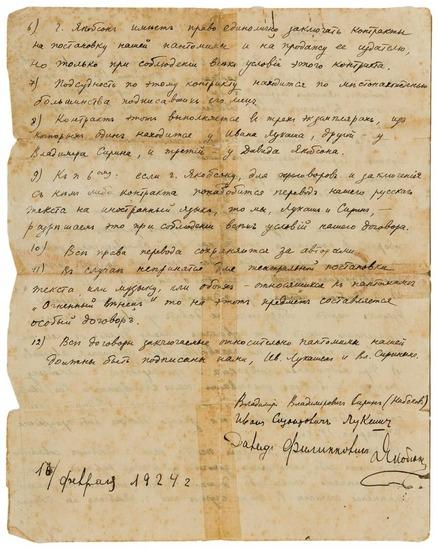 6) г. Якобсонъ имѣетъ право единолично заключать контракты
на постановку нашей пантомимы и на продажу ее издателю,
но только при соблюденiи всѣхъ условiй этого контракта.
7) Подсудность по этому контракту находится по мѣстонахожденiю
большинства подписавшихъ его лицъ.
8) Контрактъ этотъ выполняется въ трехъ экземплярахъ, изъ
которыхъ одинъ находится у Ивана Лукаша, другой – у
Владимiра Сирина, и третiй у Давида Якобсона.
9) Къ п 6ому: если г. Якобсону, для договоровъ и заключенiя
съ кѣмъ либо контракта понадобится переводъ нашего русскаго
текста на иностранный языкъ, то мы, Лукашъ и Сиринъ, –
разрѣшаемъ это при соблюденiи всѣхъ условiй нашего договора.
10) Всѣ права перевода сохраняются за авторами.
11) Въ случаѣ непринятiя для театральной постановки
текста или музыки, или обоихъ – относящихся къ пантомимѣ
"Огненный то на этотъ предметъ составляется
особый договоръ.
12) Всѣ договоры заключаемые относительно пантомимы нашей
должны быть подписаны нами, Ив. Лукашемъ и Вл. Сиринымъ.
Владимiръ Владимiровичъ Сиринъ (Набоковъ)
Иванъ Созонтовичъ Лукашъ
Давидъ Филипповичъ Якобсонъ
февраля 1924 г